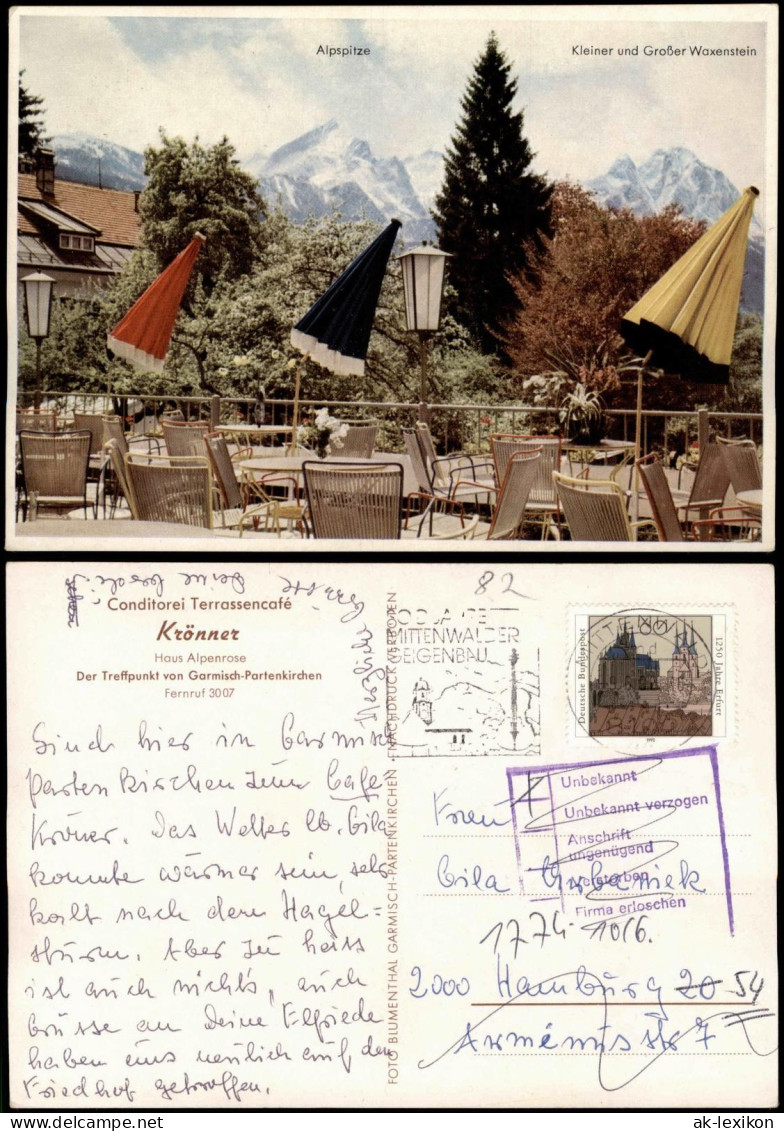 Alpspitze
Kleiner und Großer Waxenstein
Conditorei Terrassencafé
Krönner
Haus Alpenrose
Der Treffpunkt von Garmisch-Partenkirchen
Fernruf 3007
Herzliche
Sind hier in Garmisch
Partenkirchen zum Cafe
Kröner. Das Wetter lb. Gila
konnte wärmer sein, sehr
kalt nach dem Hagel=
sturm. Aber zu heiss
ist auch nichts, auch
Grüsse an Deine Elfriede
haben uns neulich auf dem
Friedhof getroffen.
FOTO BLUMENTHAL GARMISCH-PARTENKIRCHEN · NACHDRUCK VERBOTEN
82
MITTENWALDER
GEIGENBAU
Deutsche Bundespost
1250 Jahre Erfurt
Unbekannt
Unbekannt verzogen
Anschrift
ungenügend
verstorben
Firma erloschen
Frau
Gila Urbaniek
2000 Hamburg 20 54
Arminiusstr 7
ak-lexikon